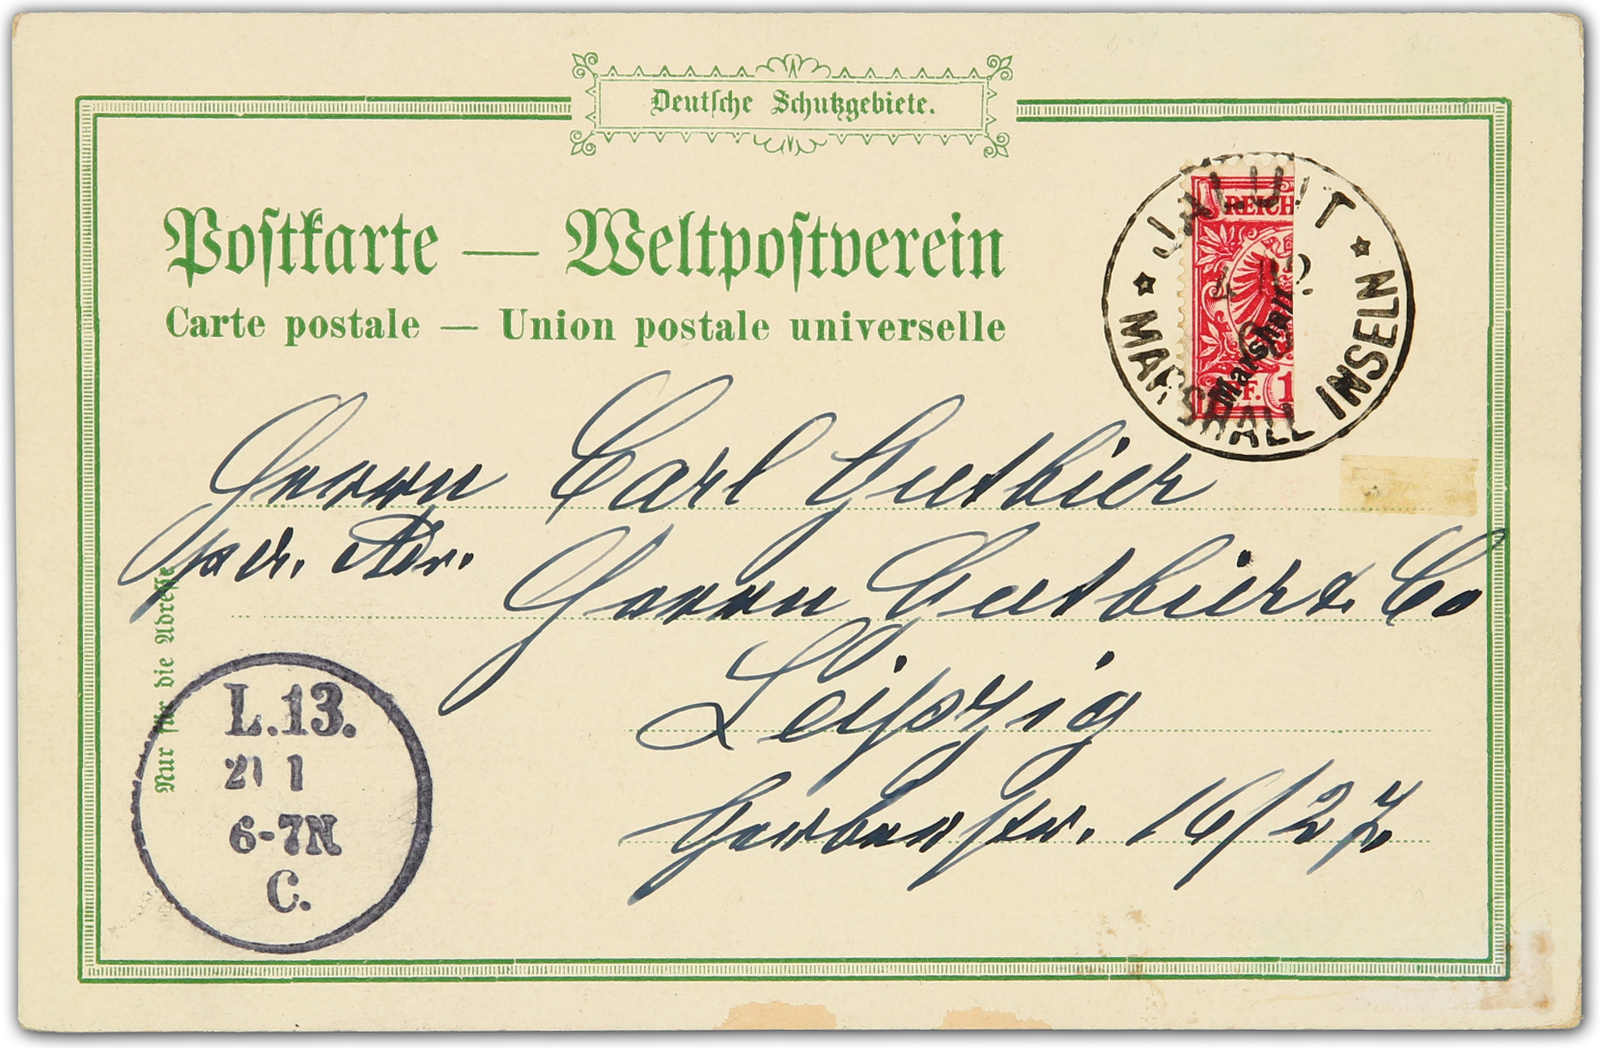 Deutsche Schutzgebiete.
Postkarte — Weltpostverein
Carte postale — Union postale universelle
JALUIT
REICH
MARSHALL INSELN
Marshall
F. 1
Herrn Carl Guthier
per. Adr.
Herrn Guthier & Co
Leipzig
Gerberstr. 16/27
Nur für die Adresse
L.13.
1
6-7N
C.